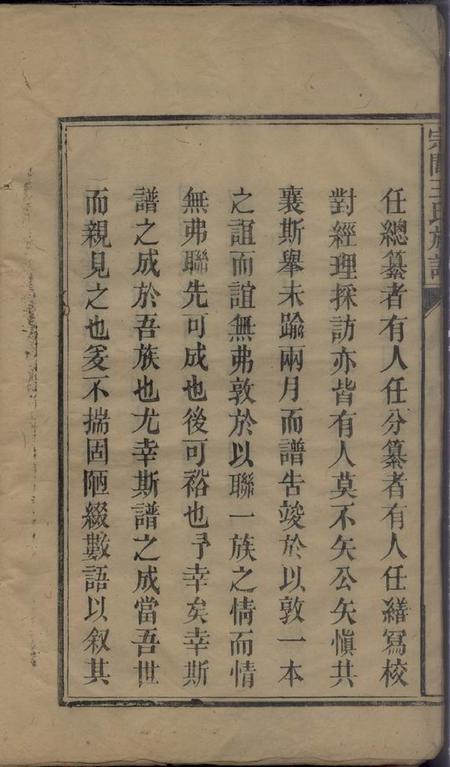 宗關王氏族譜
任總纂者有人任分纂者有人任繕寫校
對經理採訪亦皆有人莫不矢公矢愼共
襄斯舉未踰兩月而譜告竣於以敦一本
之誼而誼無弗敦於以聯一族之情而情
無弗聯先可成也後可裕也予幸矣幸斯
譜之成於吾族也尤幸斯譜之成當吾世
而親見之也爰不揣固陋綴數語以叙其